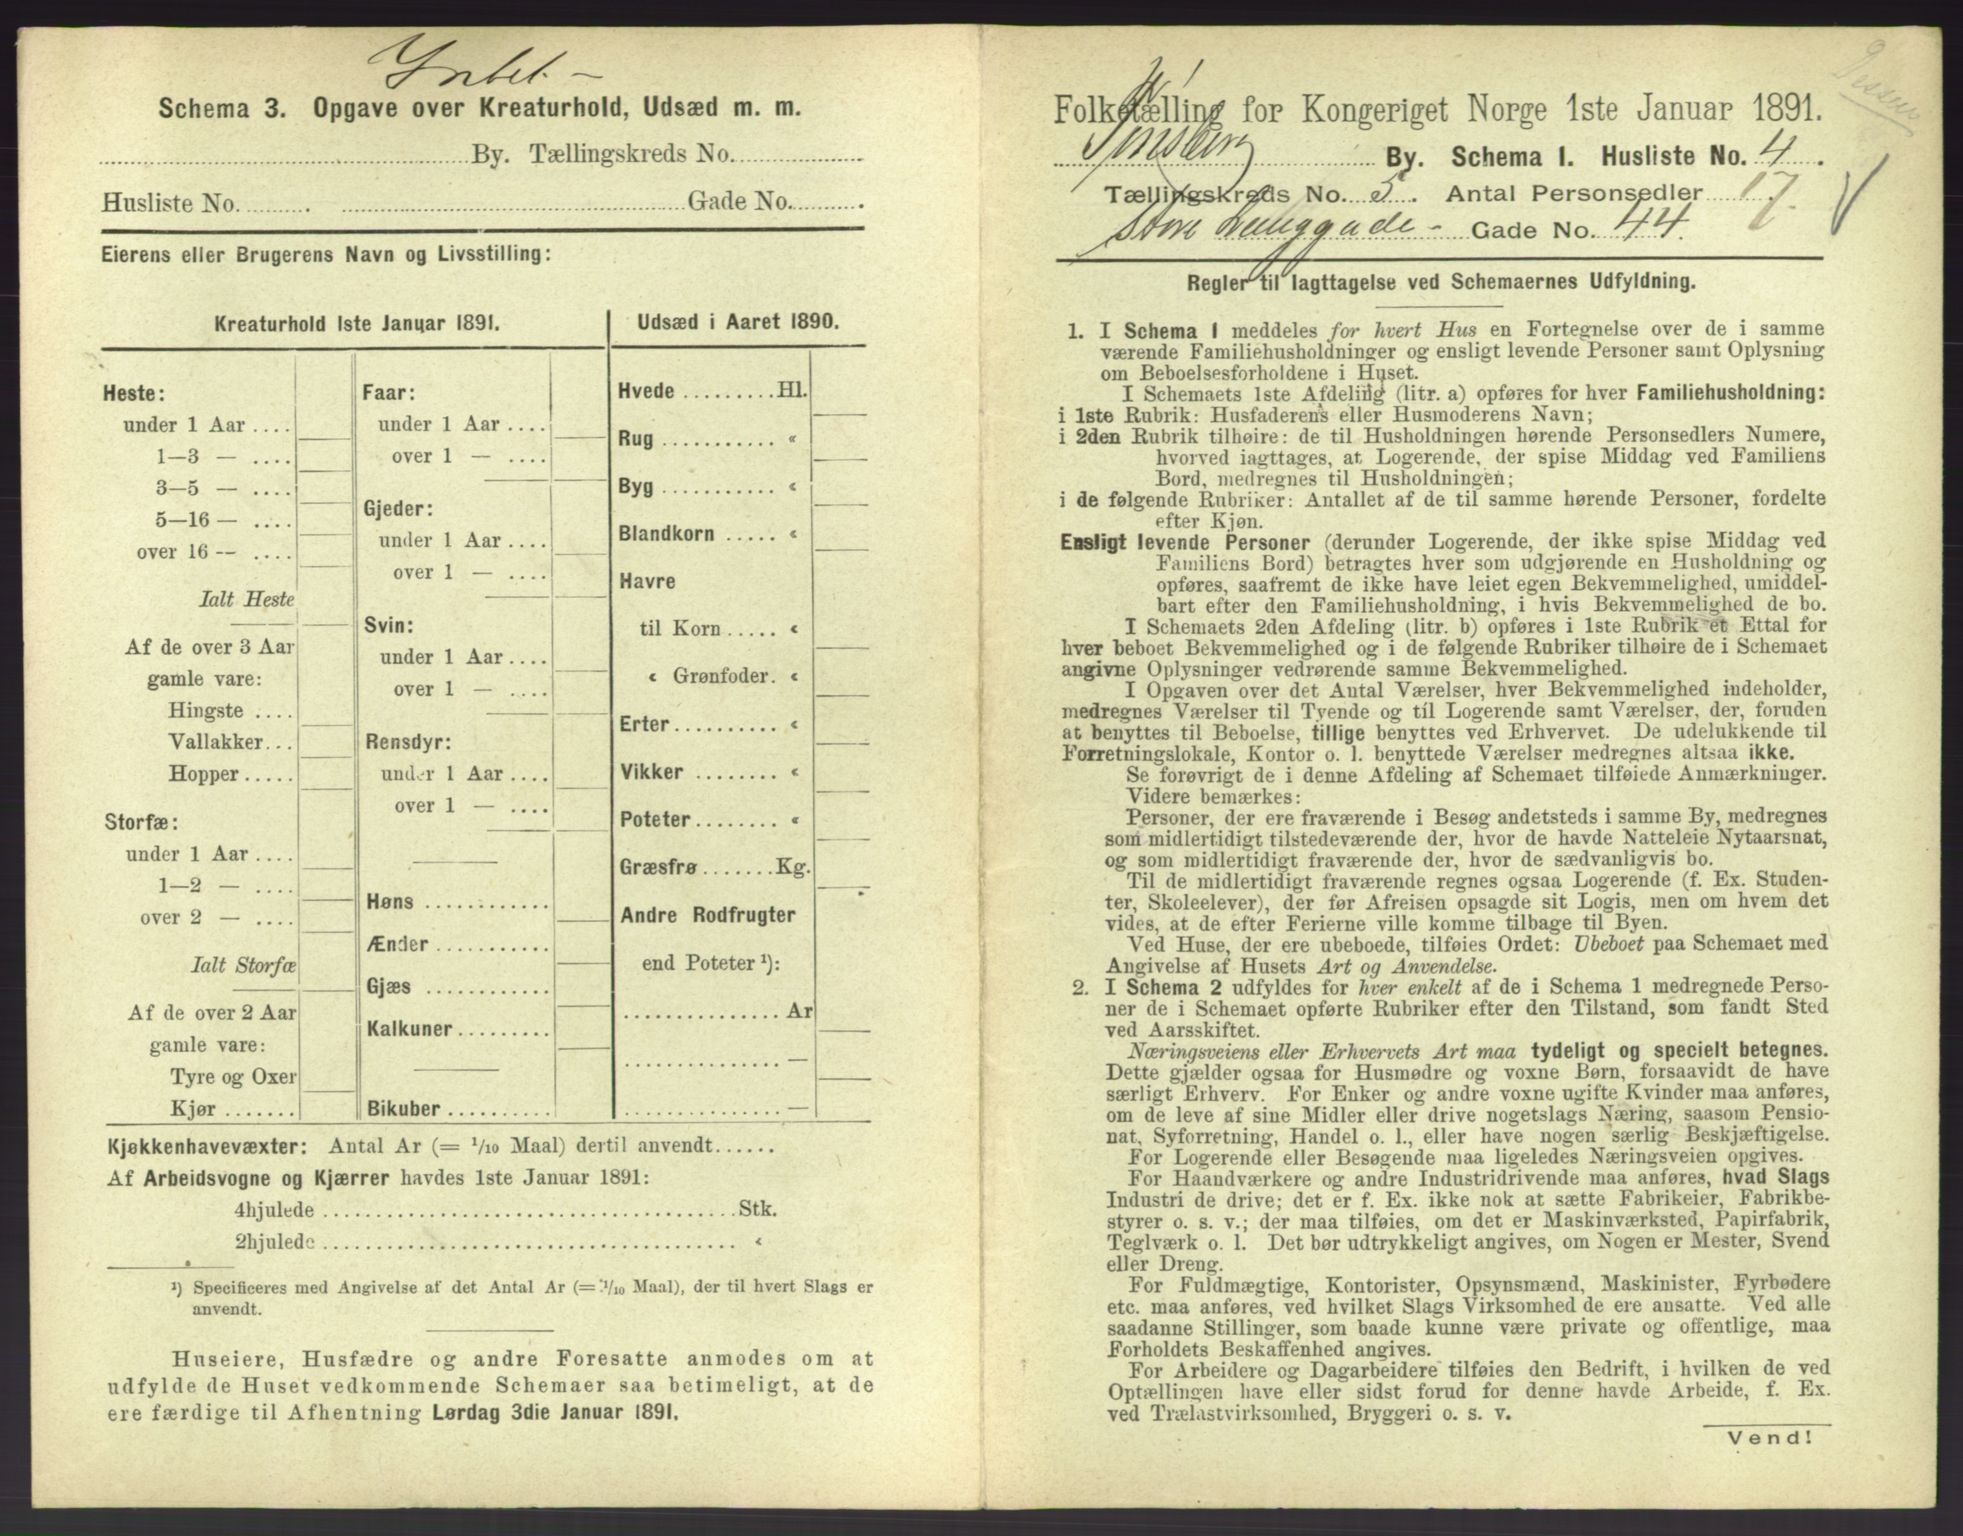 Intet. —
Schema 3. Opgave over Kreaturhold, Udsæd m. m.
By. Tællingskreds No.
Husliste No. Gade No.
Eierens eller Brugerens Navn og Livsstilling:
Kreaturhold 1ste Januar 1891.
Heste:
under 1 Aar
1—3 —
3—5 —
5—16 —
over 16 —
Ialt Heste
Af de over 3 Aar
gamle vare:
Hingste
Vallakker
Hopper
Storfæ:
under 1 Aar
1—2 —
over 2 —
Ialt Storfæ
Af de over 2 Aar
gamle vare:
Tyre og Oxer
Kjør
Faar:
under 1 Aar
over 1 —
Gjeder:
under 1 Aar
over 1 —
Svin:
under 1 Aar
over 1 —
Rensdyr:
under 1 Aar
over 1 —
Høns
Ænder
Gjæs
Kalkuner
Bikuber
Udsæd i Aaret 1890.
Hvede Hl.
Rug «
Byg «
Blandkorn «
Havre
til Korn «
« Grønfoder. «
Erter «
Vikker «
Poteter «
Græsfrø Kg.
Andre Rodfrugter
end Poteter ¹):
Ar
—
—
Kjøkkenhavevæxter: Antal Ar (= ¹/₁₀ Maal) dertil anvendt
Af Arbeidsvogne og Kjærrer havdes 1ste Januar 1891:
4hjulede Stk.
2hjulede «
¹) Specificeres med Angivelse af det Antal Ar (= ¹/₁₀ Maal), der til hvert Slags er
anvendt.
Huseiere, Husfædre og andre Foresatte anmodes om at
udfylde de Huset vedkommende Schemaer saa betimeligt, at de
ere færdige til Afhentning Lørdag 3die Januar 1891.
Folketælling for Kongeriget Norge 1ste Januar 1891.
Tønsberg By. Schema 1. Husliste No. 4.
Tællingskreds No. 5. Antal Personsedler 17.
Store Langgade - Gade No. 44.
Regler til Iagttagelse ved Schemaernes Udfyldning.
1. I Schema 1 meddeles for hvert Hus en Fortegnelse over de i samme
værende Familiehusholdninger og ensligt levende Personer samt Oplysning
om Beboelsesforholdene i Huset.
I Schemaets 1ste Afdeling (litr. a) opføres for hver Familiehusholdning:
i 1ste Rubrik: Husfaderens eller Husmoderens Navn;
i 2den Rubrik tilhøire: de til Husholdningen hørende Personsedlers Numere,
hvorved iagttages, at Logerende, der spise Middag ved Familiens
Bord, medregnes til Husholdningen;
i de følgende Rubriker: Antallet af de til samme hørende Personer, fordelte
efter Kjøn.
Ensligt levende Personer (derunder Logerende, der ikke spise Middag ved
Familiens Bord) betragtes hver som udgjørende en Husholdning og
opføres, saafremt de ikke have leiet egen Bekvemmelighed, umiddel-
bart efter den Familiehusholdning, i hvis Bekvemmelighed de bo.
I Schemaets 2den Afdeling (litr. b) opføres i 1ste Rubrik et Ettal for
hver beboet Bekvemmelighed og i de følgende Rubriker tilhøire de i Schemaet
angivne Oplysninger vedrørende samme Bekvemmelighed.
I Opgaven over det Antal Værelser, hver Bekvemmelighed indeholder,
medregnes Værelser til Tyende og til Logerende samt Værelser, der, foruden
at benyttes til Beboelse, tillige benyttes ved Erhvervet. De udelukkende til
Forretningslokale, Kontor o. l. benyttede Værelser medregnes altsaa ikke.
Se forøvrigt de i denne Afdeling af Schemaet tilføiede Anmærkninger.
Videre bemærkes:
Personer, der ere fraværende i Besøg andetsteds i samme By, medregnes
som midlertidigt tilstedeværende der, hvor de havde Natteleie Nytaarsnat,
og som midlertidigt fraværende der, hvor de sædvanligvis bo.
Til de midlertidigt fraværende regnes ogsaa Logerende (f. Ex. Studen-
ter, Skoleelever), der før Afreisen opsagde sit Logis, men om hvem det
vides, at de efter Ferierne ville komme tilbage til Byen.
Ved Huse, der ere ubeboede, tilføies Ordet: Ubeboet paa Schemaet med
Angivelse af Husets Art og Anvendelse.
2. I Schema 2 udfyldes for hver enkelt af de i Schema 1 medregnede Perso-
ner de i Schemaet opførte Rubriker efter den Tilstand, som fandt Sted
ved Aarsskiftet.
Næringsveiens eller Erhvervets Art maa tydeligt og specielt betegnes.
Dette gjælder ogsaa for Husmødre og voxne Børn, forsaavidt de have
særligt Erhverv. For Enker og andre voxne ugifte Kvinder maa anføres,
om de leve af sine Midler eller drive nogetslags Næring, saasom Pensio-
nat, Syforretning, Handel o. l., eller have nogen særlig Beskjæftigelse.
For Logerende eller Besøgende maa ligeledes Næringsveien opgives.
For Haandværkere og andre Industridrivende maa anføres, hvad Slags
Industri de drive; det er f. Ex. ikke nok at sætte Fabrikeier, Fabrikbe-
styrer o. s. v.; der maa tilføies, om det er Maskinværksted, Papirfabrik,
Teglværk o. l. Det bør udtrykkeligt angives, om Nogen er Mester, Svend
eller Dreng.
For Fuldmægtige, Kontorister, Opsynsmænd, Maskinister, Fyrbødere
etc. maa anføres, ved hvilket Slags Virksomhed de ere ansatte. Ved alle
saadanne Stillinger, som baade kunne være private og offentlige, maa
Forholdets Beskaffenhed angives.
For Arbeidere og Dagarbeidere tilføies den Bedrift, i hvilken de ved
Optællingen have eller sidst forud for denne havde Arbeide, f. Ex.
ved Trælastvirksomhed, Bryggeri o. s. v.
Vend!